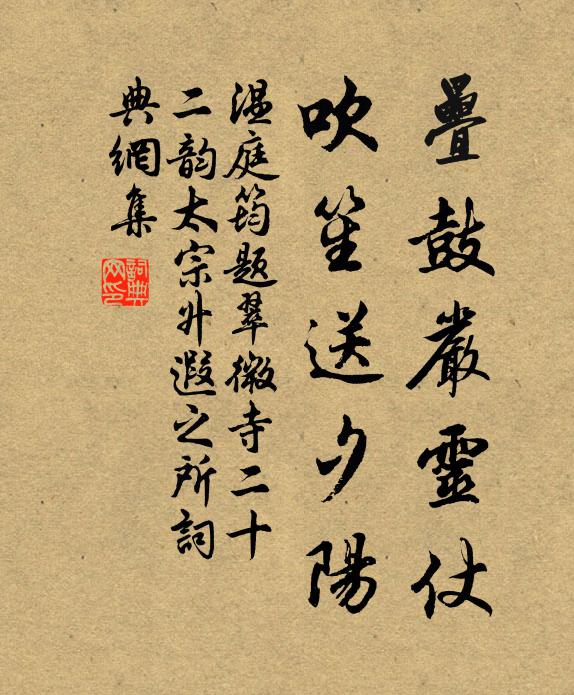 疊鼓嚴靈仗
吹笙送夕陽
溫庭筠題翠微寺二十
二韵太宗升遐之所詞
典網集
詞典
网印